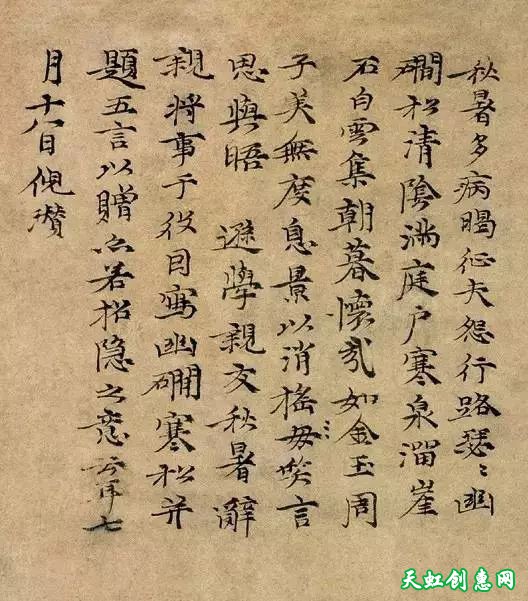 秋暑多病暍征夫怨行路瑟〻幽
磵松清陰滿庭户寒泉溜崖
石白雲集朝暮懷哉如金玉周
子美無度息景以消搖毋笑言
思與晤 遜學親友秋暑辭
親將事于役因寫幽磵寒松并
題五言以贈亦若招隱之意云耳七
月十八日倪瓚
天虹创惠网